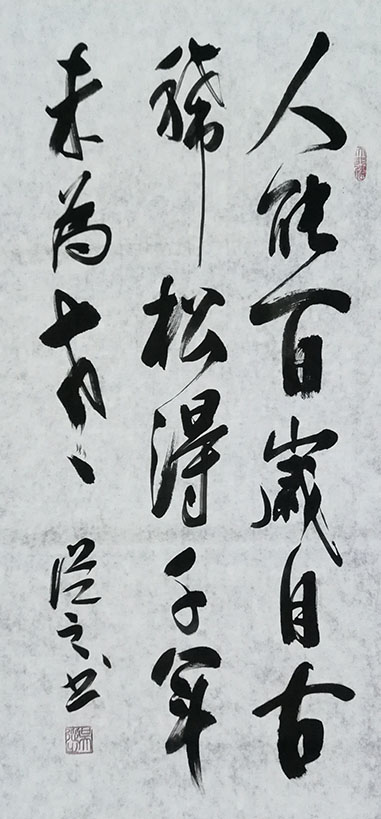 人能百歲自古
稀松得千年
未為奇
之书